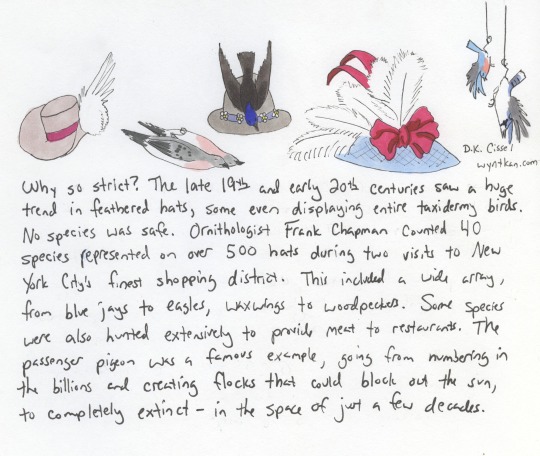 D.K. Cissel
wyntkan.com
Why so strict? The late 19th and early 20th centuries saw a huge
trend in feathered hats, some even displaying entire taxidermy birds.
No species was safe. Ornithologist Frank Chapman counted 40
species represented on over 500 hats during two visits to New
York City's finest shopping district. This included a wide array,
from blue jays to eagles, waxwings to woodpeckers. Some species
were also hunted extensively to provide meat to restaurants. The
passenger pigeon was a famous example, going from numbering in
the billions and creating flocks that could block out the sun,
to completely extinct - in the space of just a few decades.